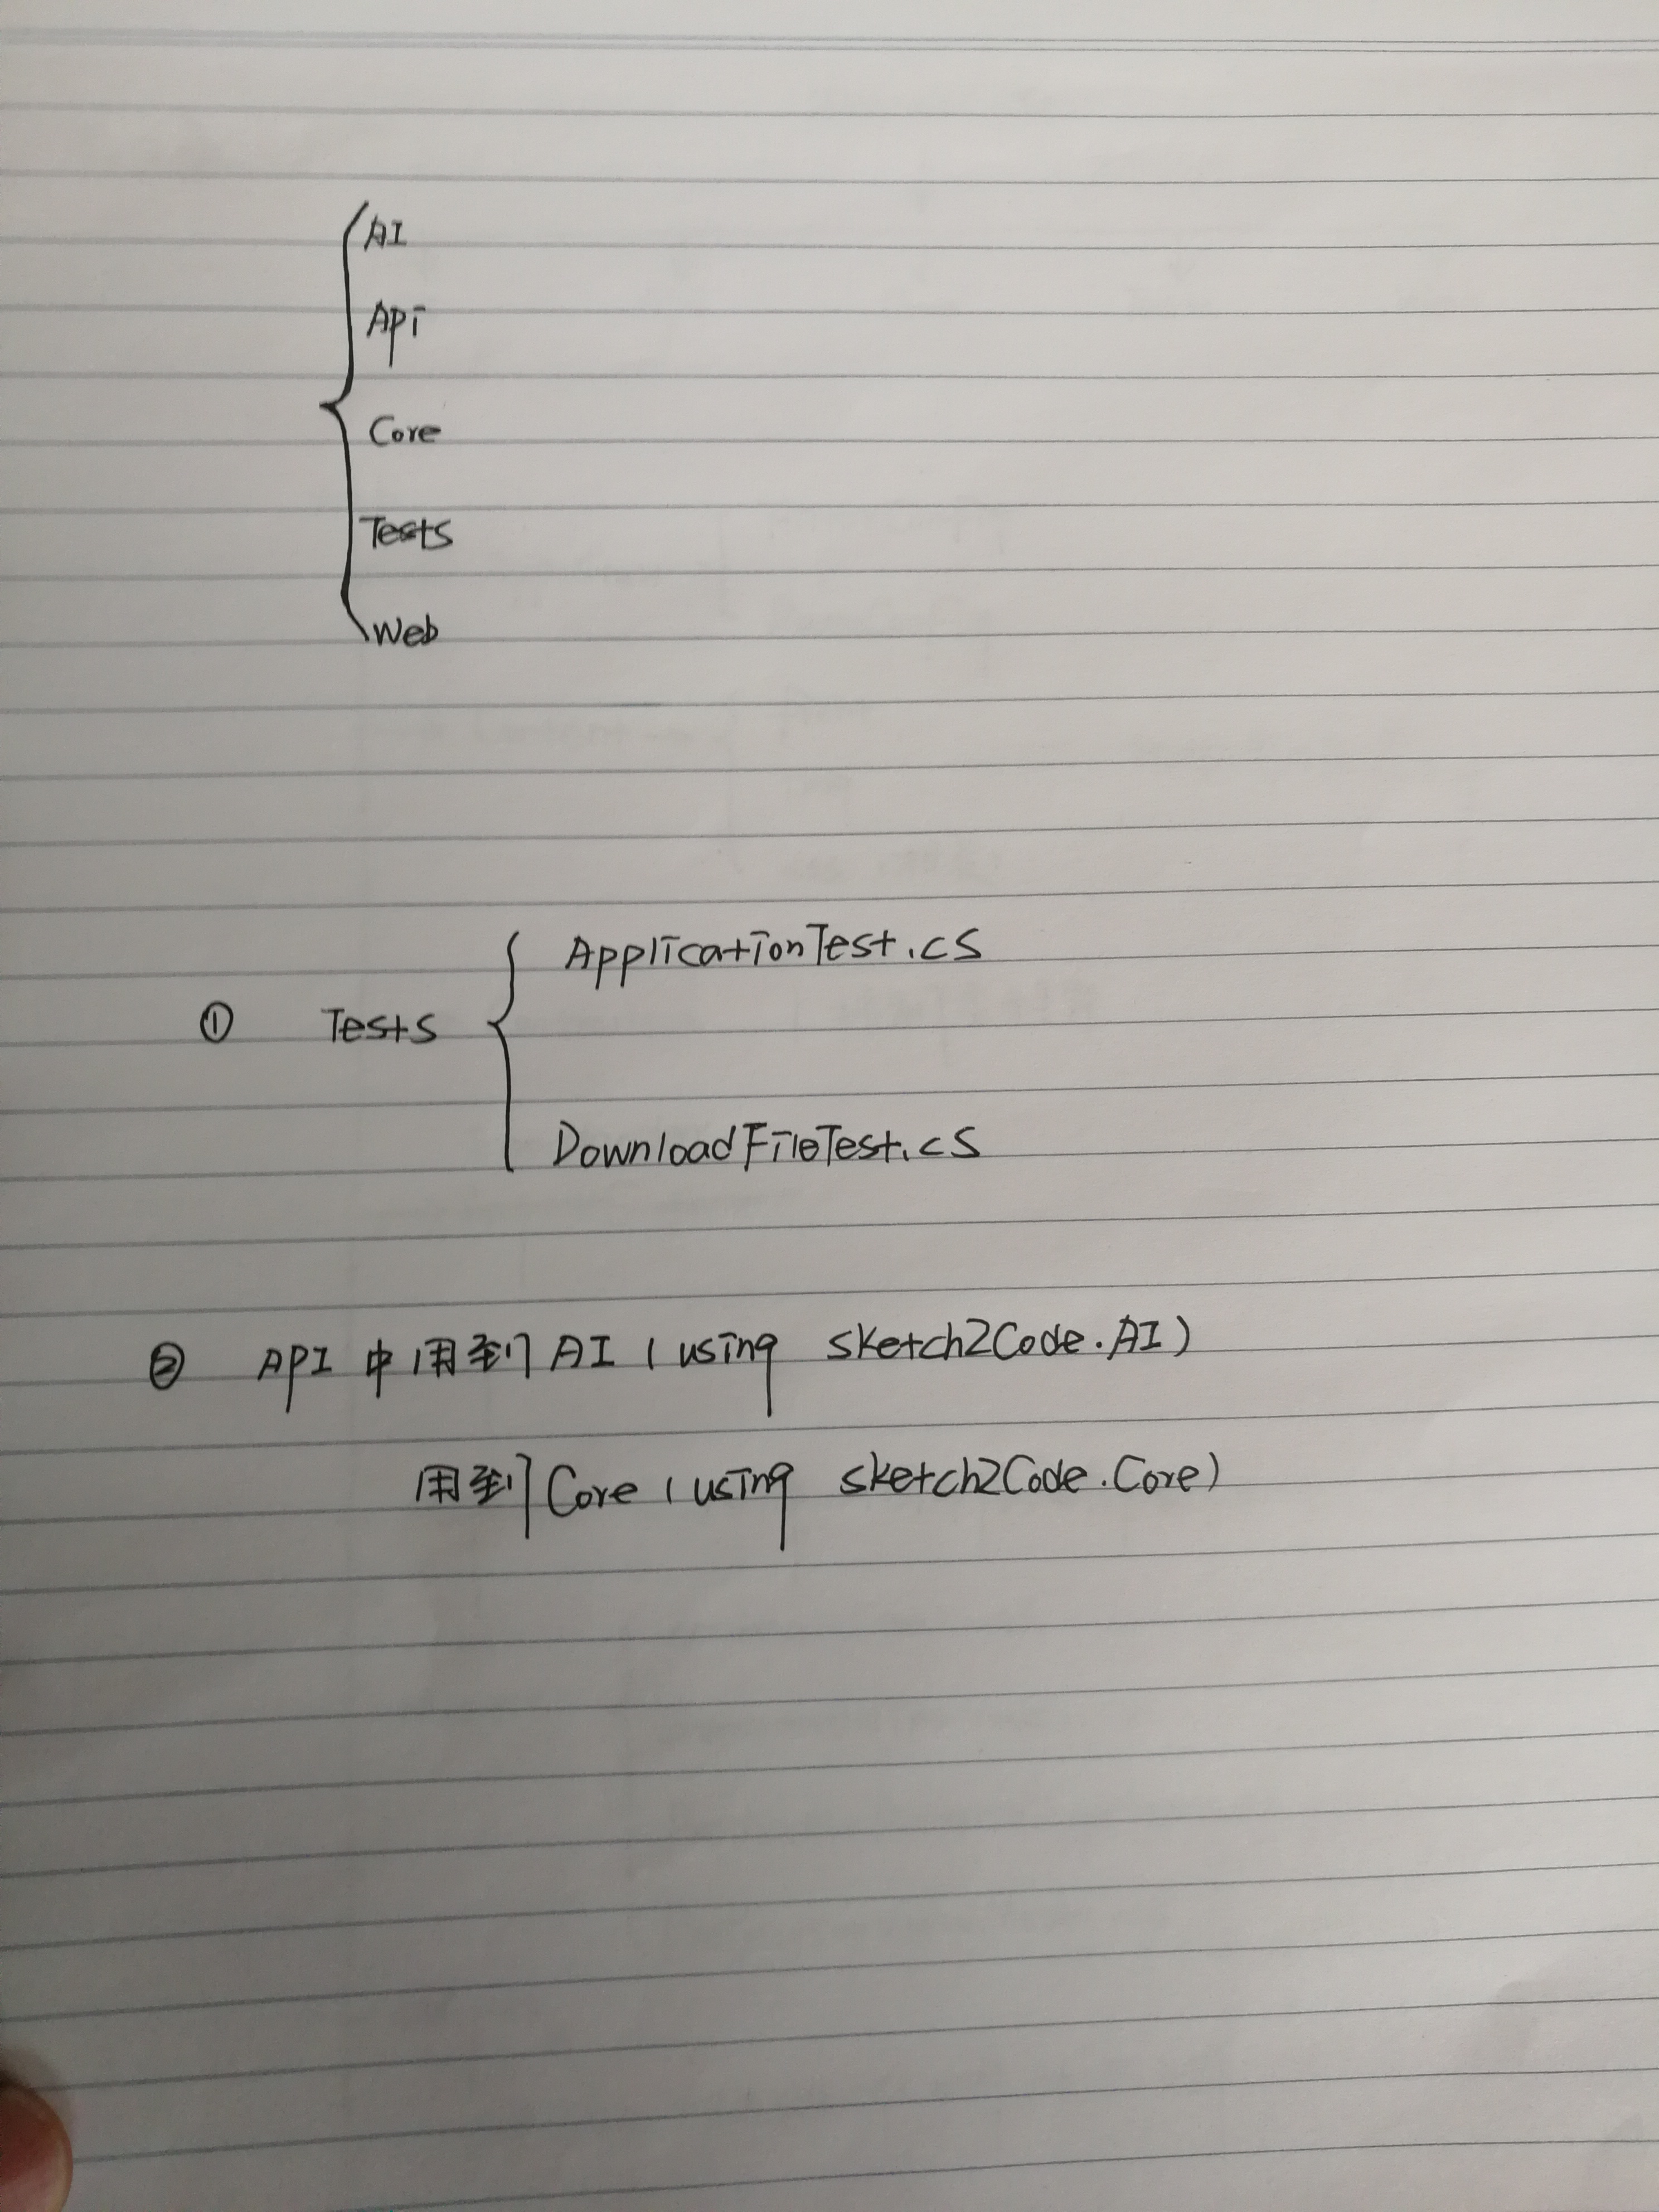 AI
Api
Core
Tests
Web
ApplicationTest.cs
① Tests
DownloadFileTest.cs
② API 中用到 AI (using sketch2Code.AI)
用到 Core (using sketch2Code.Core)